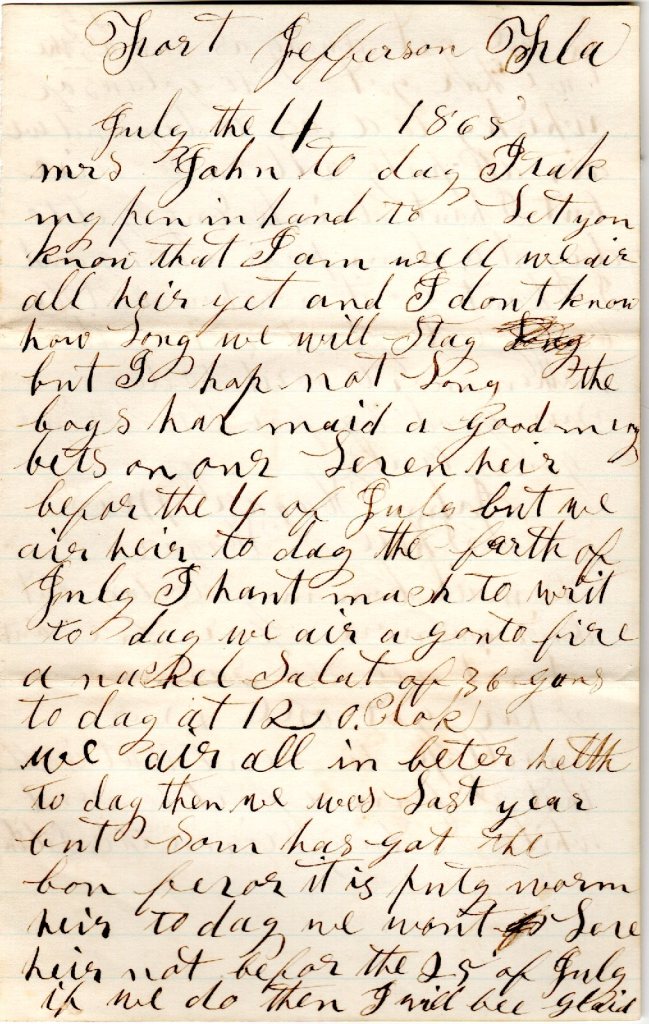 Fort Jefferson Fla
July the 4 1865
mrs John to day I tak
my pen in hand to Let you
know that I am well we air
all heir yet and I dont know
how Long we will Stay
but I hap not Long the
boys hav maid a good meny
bets on our Leven heir
befor the 4 of July but we
air heir to day the forth of
July I hant mach to writ
to day we air a gonto fire
a nashel Salut of 36 guns
to day at 12 O.Clok
we air all in beter helth
to day then we was Last year
but Som has got the
bon fevor it is puty worm
heir to day we wont Leve
heir not befor the 25 of July
if we do then I will bee glaid